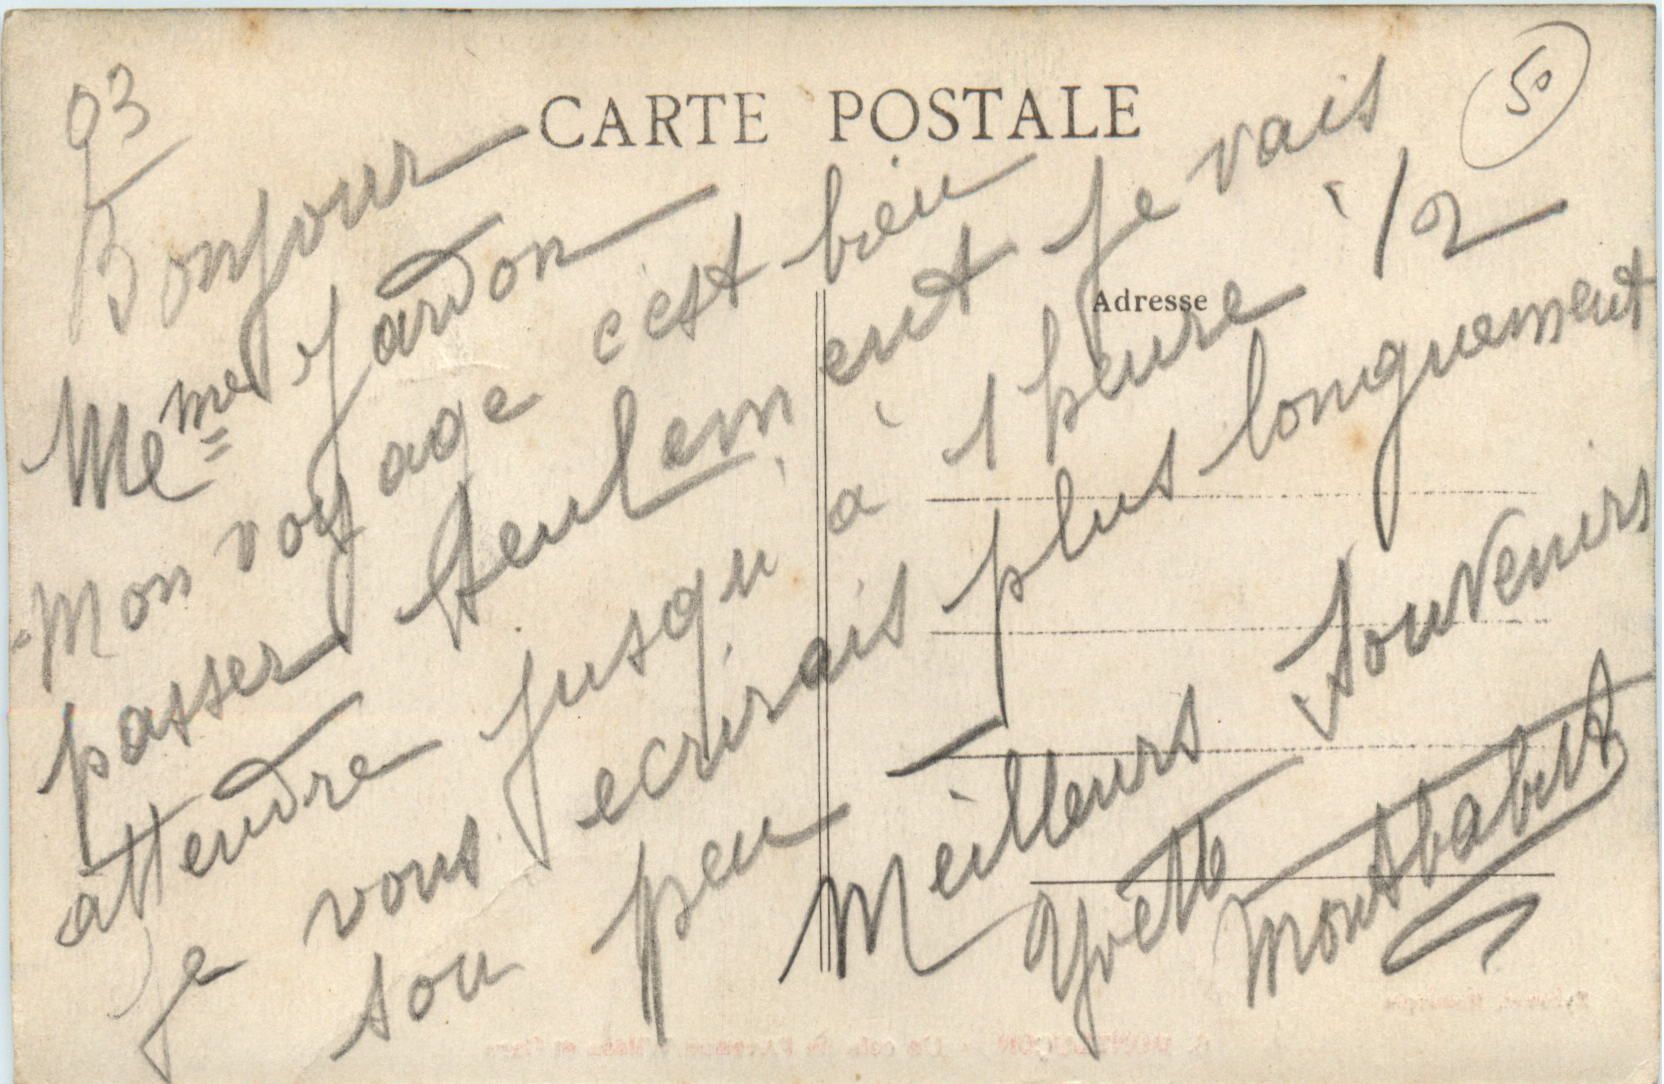 03
50
CARTE POSTALE
Adresse
Bonjour
Meme Jardon
Mon voyage c'est bien
passer seulement je vais
attendre jusqu'à 1 heure 1/2
je vous ecrirais plus longuement
sou peu
Meilleurs Souvenirs
Yvette